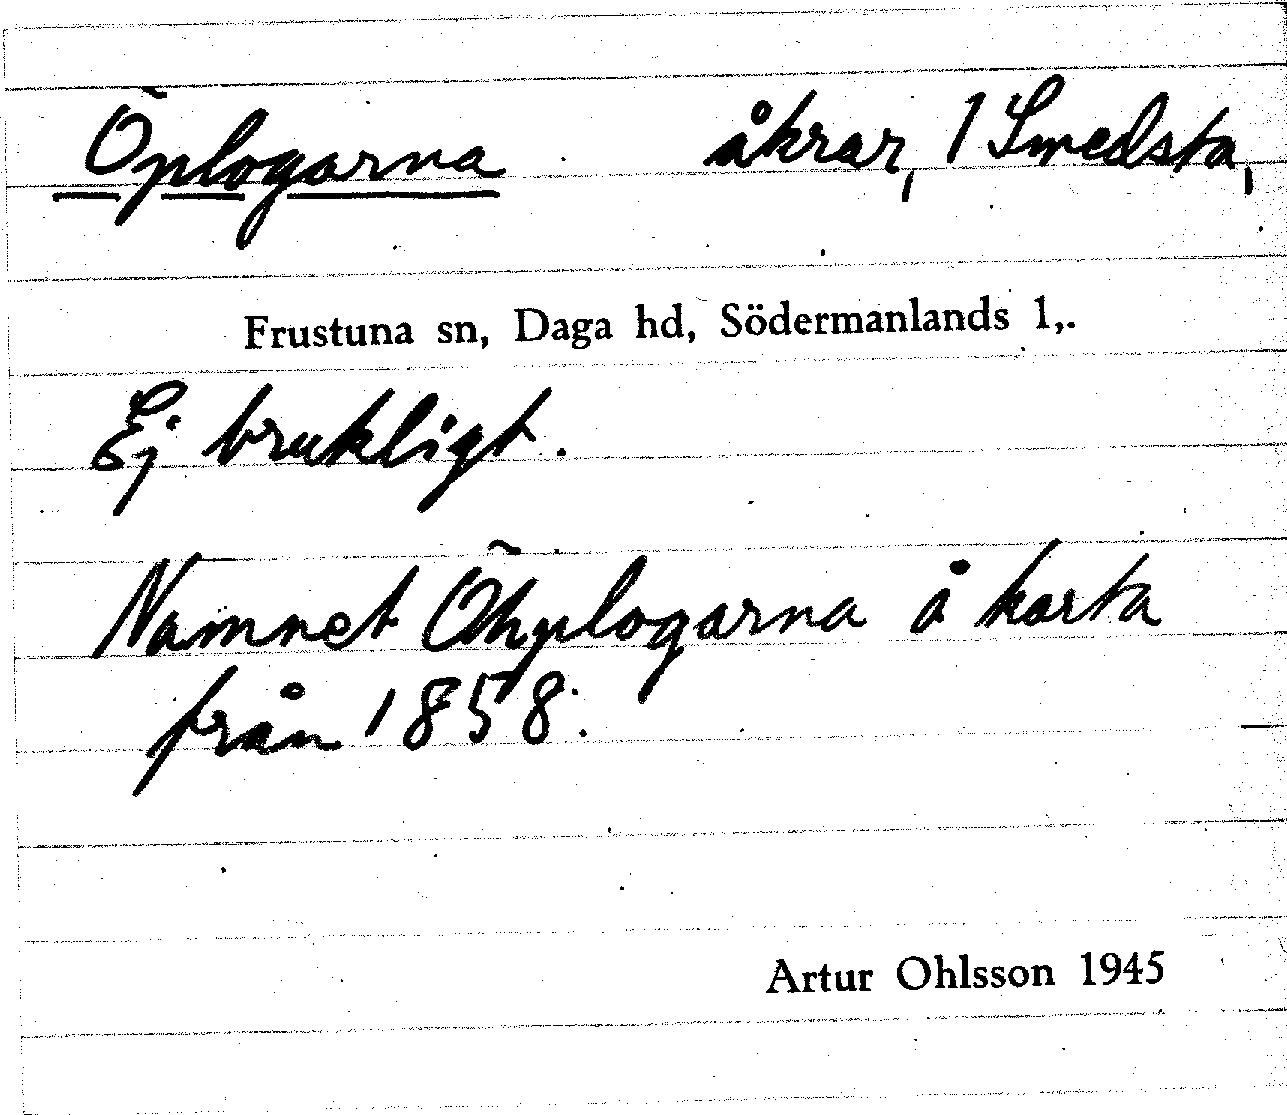 Öplogarna åkrar, 1 Smedsta,
Frustuna sn, Daga hd, Södermanlands l,.
Ej brukligt.
Namnet Öhplogarna å karta
från 1858.
Artur Ohlsson 1945